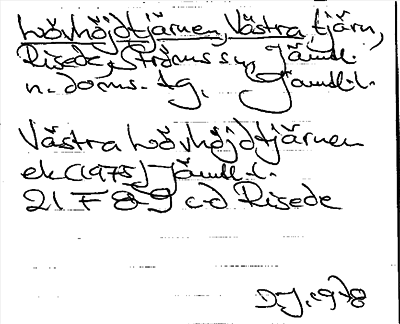 Lövhöjdtjärnen, Västra, tjärn,
Risede, Ströms sn, Jämtl.
n. doms. tg, Jämtl. l.
Västra Lövhöjdtjärnen
ek (1975) Jämtl. l.
21 F 8-9 c-d Risede
DJ. 1978